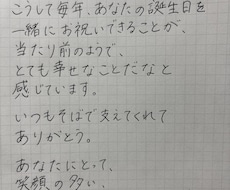 こうして毎年、あなたの誕生日を
一緒にお祝いできることが、
当たり前のようで、
とても幸せなことだなと
感じています。
いつもそばで支えてくれて
ありがとう。
あなたにとって、
笑顔の多い、